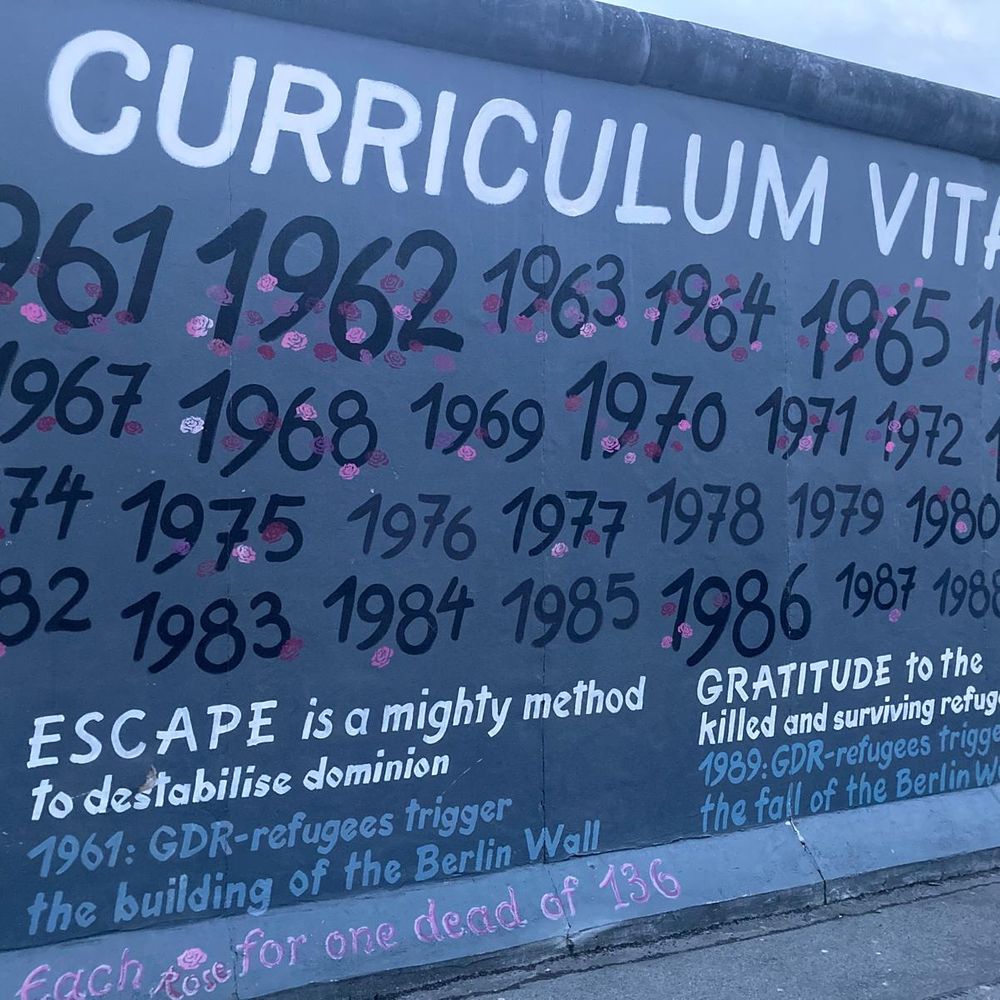 CURRICULUM VITA
961 1962 1963 1964 1965 1
1967 1968 1969 1970 1971 1972 1
74 1975 1976 1977 1978 1979 1980
82 1983 1984 1985 1986 1987 1988
ESCAPE is a mighty method
to destabilise dominion
1961: GDR-refugees trigger
the building of the Berlin Wall
GRATITUDE to the
killed and surviving refug
1989: GDR-refugees trigge
the fall of the Berlin Wa
Each Rose for one dead of 136